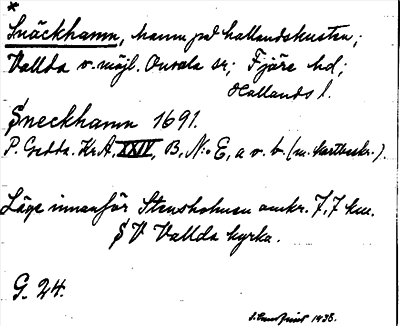 *
Snäckhamn, hamn på hallandskusten;
Vallda v. möjl. Onsala sn; Fjäre hd;
Hallands l.
Sneckhamn 1691.
P. Gedda. Kr.A, XXIV, B, N:o E, a o. b. (m. kartbeskr.).
Läge innanför Stensholmen omkr. 7,7 km.
S V Vallda kyrka.
G. 24.
1938.